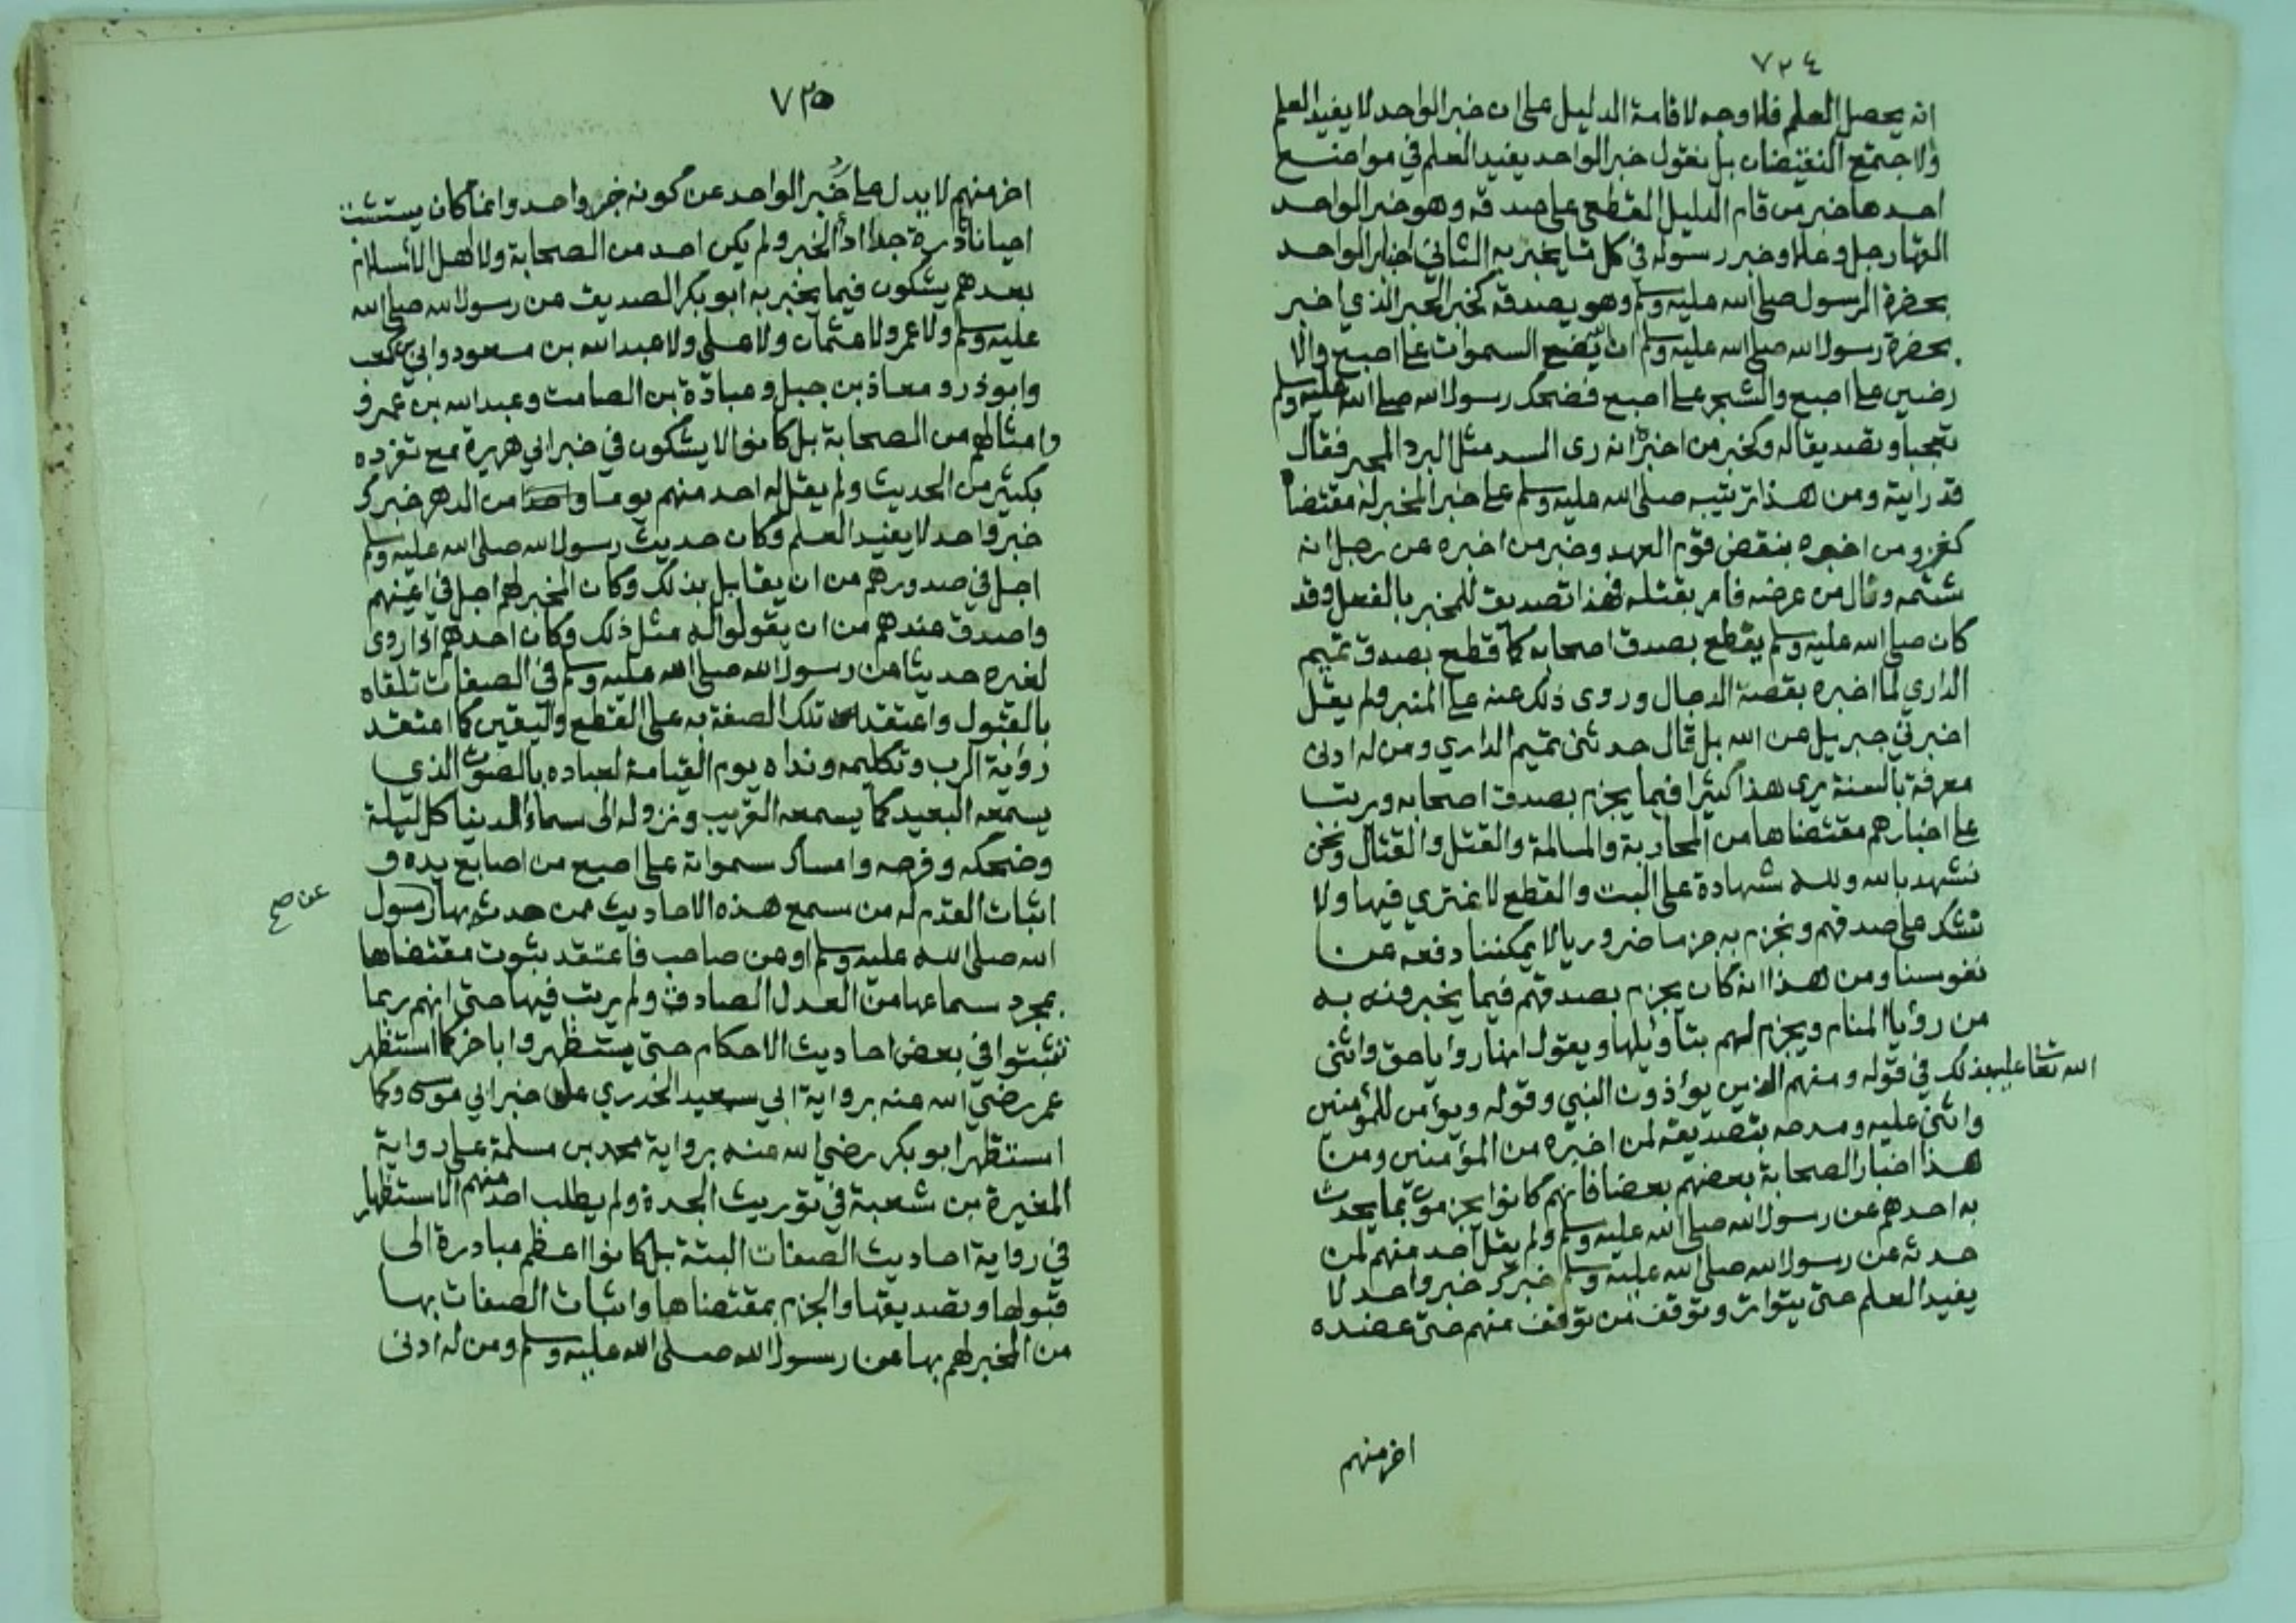 ٧٢٤
انه يحصل العلم فلا وجه لاقامة الدليل على ان خبر الواحد لا يفيد العلم
ولا جتمع النقيضان بل نقول خبر الواحد يفيد العلم في مواضع
احدها خبر من قام الدليل القطعي على صدقه وهو خبر الواحد
القهار جل وعلا وخبر رسوله في كل ما يخبر به الثاني اخبار الواحد
بحضرة الرسول صلى الله عليه وسلم وهو يصدقه كخبر الحبر الذي اخبر
بحضرة رسول الله صلى الله عليه وسلم ان الله يضع السموات على اصبع والا
رضين على اصبع والشجر على اصبع فضحك رسول الله صلى الله عليه وسلم
تعجبا وتصديقا له وكخبر من اخبره انه رى السد مثل البرد المحبر فقال
قد رايته ومن هذا ترتيبه صلى الله عليه وسلم على خبر المخبر له مقتضاه
كغزو من اخبره بنقض قوم العهد وخبر من اخبره عن رجل انه
شتمه ونال من عرضه فامر بقتله فهذا تصديق للمخبر بالفعل وقد
كان صلى الله عليه وسلم يقطع بصدق اصحابه كما قطع بصدق تميم
الداري لما اخبره بقصة الدجال وروى ذلك عنه على المنبر ولم يقل
اخبرني جبريل عن الله بل قال حدثني تميم الداري ومن له ادنى
معرفة بالسنة يرى هذا كثيرا فيما يجزم بصدق اصحابه ويرتب
على اخبارهم مقتضاها من المحاربة والمسالمة والقتل والقتال ونحن
نشهد بالله ولله شهادة على البت والقطع لا نمتري فيها ولا
نشك على صدقهم ونجزم به جزما ضروريا لا يمكننا دفعه عن
نفوسنا ومن هذا انه كان يجزم بصدقهم فيما يخبرونه به
من رؤيا المنام ويجزم لهم بتأويلها ويقول انها رؤيا حق واثنى
الله تعا عليه بذلك في قوله ومنهم الذين يؤذون النبي وقوله ويؤمن للمؤمنين
واثنى عليه ومدحه بتصديقه لمن اخبره من المؤمنين ومن
هذا اخبار الصحابة بعضهم بعضا فانهم كانوا يجزمون بما يحدث
به احدهم عن رسول الله صلى الله عليه وسلم ولم يقل احد منهم لمن
حدثه عن رسول الله صلى الله عليه وسلم خبرك خبر واحد لا
يفيد العلم حتى يتواتر وتوقف من توقف منهم حتى عضده
اخر منهم
٧٢٥
اخر منهم لا يدل على خبر الواحد عن كونه خبر واحد وانما كان يستثبت
احيانا نادرة جدا اذا الخبر ولم يكن احد من الصحابة ولا اهل الاسلام
بعدهم يشكون فيما يخبر به ابو بكر الصديق عن رسول الله صلى الله
عليه وسلم ولا عمر ولا عثمان ولا علي ولا عبد الله بن مسعود وابي بن كعب
وابو ذر ومعاذ بن جبل وعبادة بن الصامت وعبد الله بن عمر و
وامثالهم من الصحابة بل كانوا لا يشكون في خبر ابي هريرة مع تفرده
بكثير من الحديث ولم يقل له احد منهم يوما واحدا من الدهر خبرك
خبر واحد لا يفيد العلم وكان حديث رسول الله صلى الله عليه وسلم
اجل في صدورهم من ان يقابل بذلك وكان المخبر لهم اجل في اعينهم
واصدق عندهم من ان يقولوا له مثل ذلك وكان احدهم اذا روى
لغيره حديثا عن رسول الله صلى الله عليه وسلم في الصفات تلقاه
بالقبول واعتقد تلك الصفة به على القطع واليقين كما اعتقد
رؤية الرب وتكليمه ونداه يوم القيامة لعباده بالصوت الذي
يسمعه البعيد كما يسمعه القريب ونزوله الى سماء الدنيا كل ليلة
وضحكه وفرحه وامساك سمواته على اصبع من اصابع يده و
اثبات القدم له من سمع هذه الاحاديث ممن حدث بها رسول
عن صح
الله صلى الله عليه وسلم او من صاحب فاعتقد بثوت مقتضاها
بمجرد سماعها من العدل الصادق ولم يرتب فيها حتى انهم ربما
تثبتوا في بعض احاديث الاحكام حتى يستظهروا باخر كما استظهر
عمر رضي الله عنه برواية ابي سعيد الخدري على خبر ابي موسى وكما
استظهر ابو بكر رضي الله عنه برواية محمد بن مسلمة على رواية
المغيرة بن شعبة في توريث الجدة ولم يطلب احد منهم الاستظهار
في رواية احاديث الصفات البتة بل كانوا اعظم مبادرة الى
قبولها وتصديقها والجزم بمقتضاها واثبات الصفات بها
من المخبر لهم بها عن رسول الله صلى الله عليه وسلم ومن له ادنى